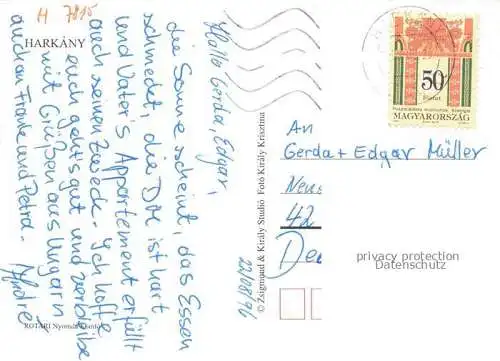 H 7815
HARKÁNY
22/08/96
Hallo Gerda, Edgar,
die Sonne scheint, das Essen
schmeckt, die DM ist hart
und Vater's Appartement erfüllt
auch seinen Zweck. Ich hoffe
euch geht's gut und verbleibe
mit Grüßen aus Ungarn
auch an Frauke und Petra.
André
ROTARI Nyomda
© Zsigmond & Király Studió Fotó Király Krisztina
50
Forint
MAGYARORSZÁG
An
Gerda + Edgar Müller
42
privacy protection
Datenschutz